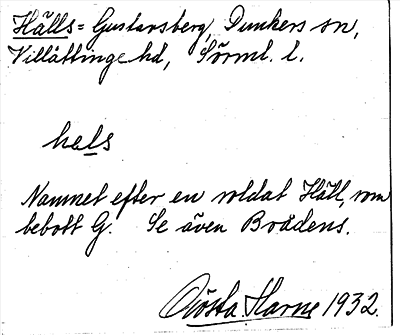 Hälls = Gustavsberg, Dunkers sn,
Villåttinge hd, Sörml. l.
hels
Namnet efter en soldat Häll, som
bebott G. Se även Brådens.
Gösta Harne 1932.